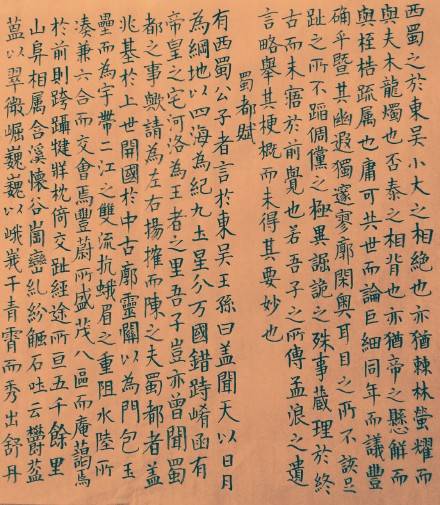 西蜀之於東吳小大之相絕也亦猶棘林螢耀而
與夫木龍燭也否泰之相背也亦猶帝之懸解而
與桎梏疏属也庸可共世而論巨細同年而議豐
确乎暨其幽遐獨邃寥廓閑奧耳目之所不該足
趾之所不蹈倜儻之極異誳詭之殊事藏理於終
古而未寤於前覺也若吾子之所傳孟浪之遺
言略舉其梗概而未得其要妙也
蜀都賦
有西蜀公子者言於東吳王孫曰盖聞天以日月
為綱地以四海為紀九土星分万國錯跱崤函有
帝皇之宅河洛為王者之里吾子豈亦曾聞蜀
都之事歟請為左右揚搉而陳之夫蜀都者盖
兆基於上世開國於中古廓靈關以為門包玉
壘而為宇帶二江之雙流抗峨眉之重阻水陸所
湊兼六合而交會焉豐蔚所盛茂八區而庵藹焉
於前則跨躡犍牂枕倚交趾經途所亘五千餘里
山阜相属含溪懷谷崗巒糺紛觸石吐云欝葐
蒀以翠微崛巍巍以峨峩干青霄而秀出舒丹